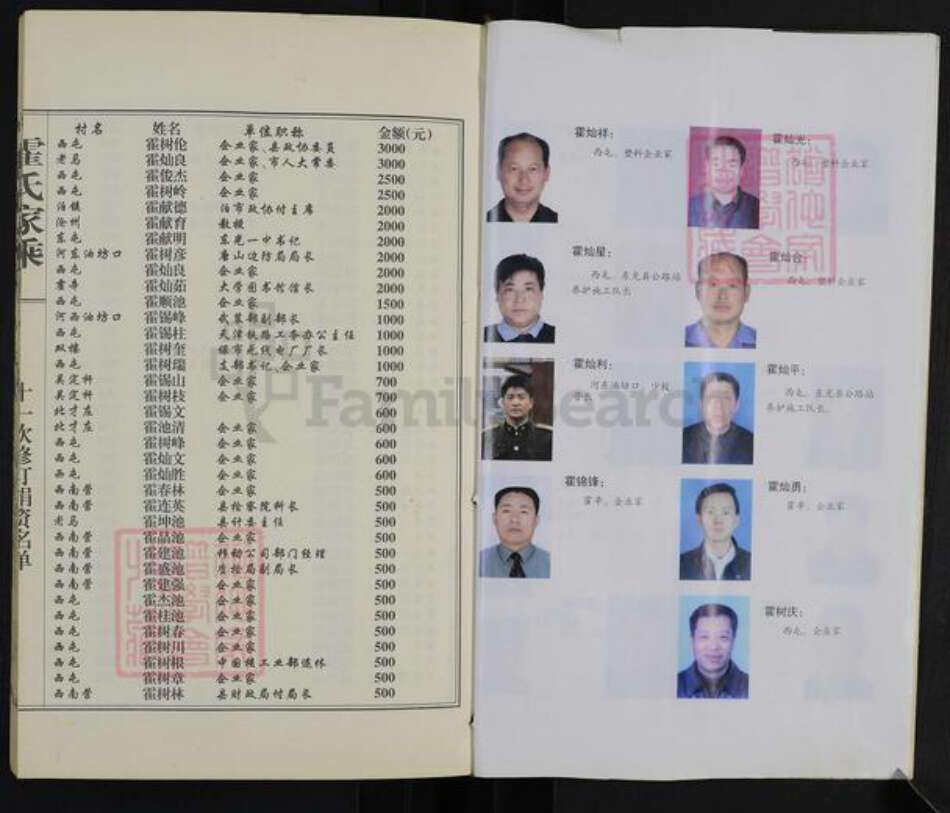 霍氏家乘
十一次修订捐资名单
村名 姓名 单位职称 金额(元)
西屯 霍树伦 企业家、县政协委员 3000
老马 霍灿良 企业家、市人大常委 3000
西屯 霍俊杰 企业家 2500
西屯 霍树岭 企业家 2500
泊镇 霍献德 泊市政协付主席 2000
沧州 霍献育 教授 2000
东屯 霍献明 东光一中书记 2000
河东油坊口 霍树彦 唐山边防局局长 2000
西屯 霍灿良 企业家 2000
霍辛 霍灿茹 大学图书馆馆长 2000
西屯 霍顺池 企业家 1500
河西油坊口 霍锡峰 武装部副部长 1000
西屯 霍锡柱 天津铁路工务办公主任 1000
双楼 霍树奎 保市无线电厂厂长 1000
西屯 霍树瑞 支部书记、企业家 1000
吴定杆 霍锡山 企业家 700
吴定杆 霍树枝 企业家 700
北才庄 霍锡文 600
北才庄 霍池清 企业家 600
西屯 霍树峰 企业家 600
西屯 霍灿文 企业家 600
西屯 霍灿胜 企业家 600
西南营 霍春林 企业家 500
西南营 霍连英 县检察院科长 500
老马 霍坤池 县计委主任 500
西南营 霍晶池 企业家 500
西南营 霍建池 移动公司部门经理 500
西南营 霍盛池 质检局副局长 500
西南营 霍建强 企业家 500
西屯 霍杰池 企业家 500
西屯 霍桂池 企业家 500
西屯 霍树春 企业家 500
西屯 霍树川 企业家 500
西屯 霍树根 中国核工业部退休 500
西屯 霍树章 企业家 500
西南营 霍树林 县财政局付局长 500
霍灿祥：
西屯，塑料企业家
霍灿光：
西屯，塑料企业家
霍灿星：
西屯，东光县公路站
养护施工队长
霍灿合：
西屯，塑料企业家
霍灿利：
河东油坊口，少校
营长
霍灿平：
西屯，东光县公路站
养护施工队长
霍锦锋：
霍辛，企业家
霍灿勇：
霍辛，企业家
霍树庆：
西屯，企业家
FamilySearch